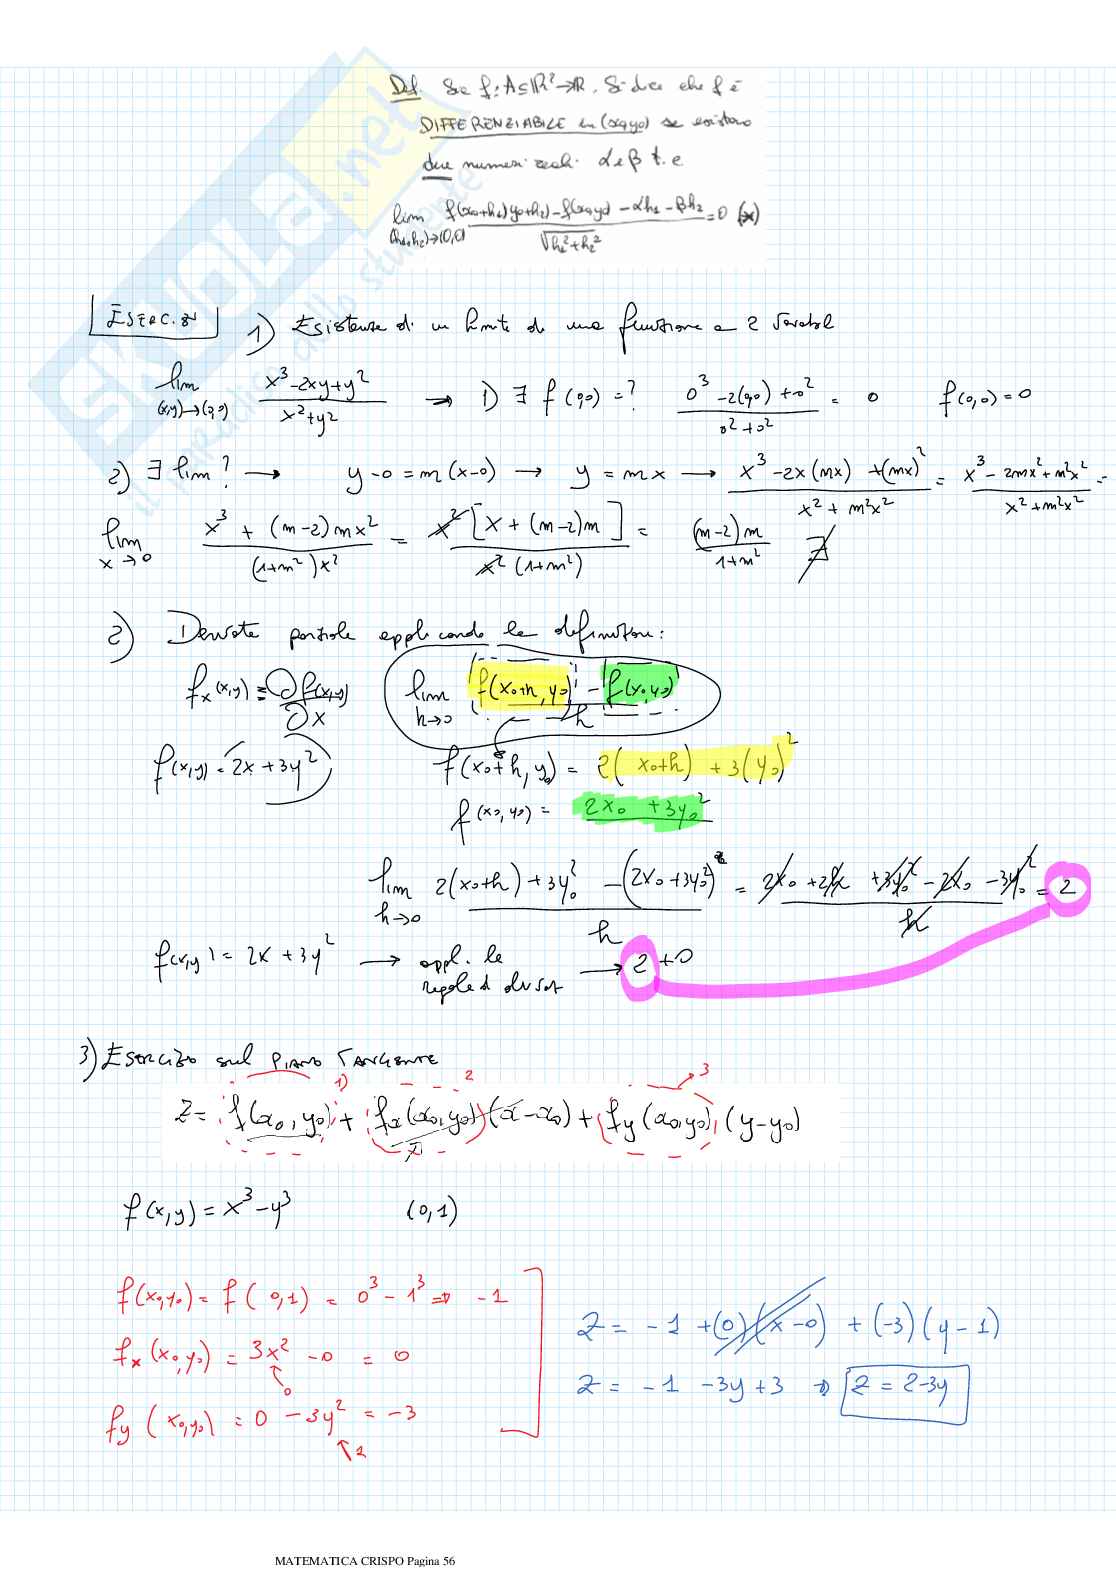 Def. Sia f: A⊆ℝ²→ℝ. Si dice che f è
DIFFERENZIABILE in (x₀,y₀) se esistono
due numeri reali α e β t.c
lim (h₁,h₂)→(0,0) [f(x₀+h₁, y₀+h₂) - f(x₀,y₀) - αh₁ - βh₂] / √(h₁²+h₂²) = 0 (*)
ESERC.
1) Esistenza di un limite di una funzione a 2 variabil
lim (x,y)→(0,0) (x³-2xy+y²)/(x²+y²) → 1) ∃ f(0,0) = ? (0³-2(0,0)+0²)/(0²+0²) = 0 f(0,0)=0
2) ∃ lim? → y-0 = m(x-0) → y = mx → (x³-2x(mx)+(mx)²)/(x²+m²x²) = (x³-2mx²+m²x²)/(x²+m²x²) =
lim x→0 (x³+(m-2)mx²)/((1+m²)x²) = x²[x+(m-2)m]/(x²(1+m²)) = (m-2)m/(1+m²) ∄
2) Derivate parziale applicando la definizione:
fx(x,y) = ∂f(x,y)/∂x lim h→0 [f(x₀+h, y₀) - f(x₀,y₀)]/h
f(x,y) = 2x+3y² f(x₀+h, y₀) = 2(x₀+h) + 3(y₀)²
f(x₀,y₀) = 2x₀ + 3y₀²
lim h→0 [2(x₀+h)+3y₀² - (2x₀+3y₀²)]/h = [2x₀+2h+3y₀²-2x₀-3y₀²]/h = 2
f(x,y) = 2x+3y² → appl. le → 2+0
regole d
3) Esercizio sul PIANO TANGENTE
1) 2 3
z = f(x₀,y₀) + fx(x₀,y₀)(x-x₀) + fy(x₀,y₀)(y-y₀)
f(x,y) = x³-y³ (0,1)
f(x₀,y₀) = f(0,1) = 0³-1³ ⇒ -1
fx(x₀,y₀) = 3x²-0 = 0
0
fy(x₀,y₀) = 0-3y² = -3
z = -1 + (0)(x-0) + (-3)(y-1)
z = -1 -3y+3 ⇒ z = 2-3y
SKUOLA.net
MATEMATICA CRISPO Pagina 56